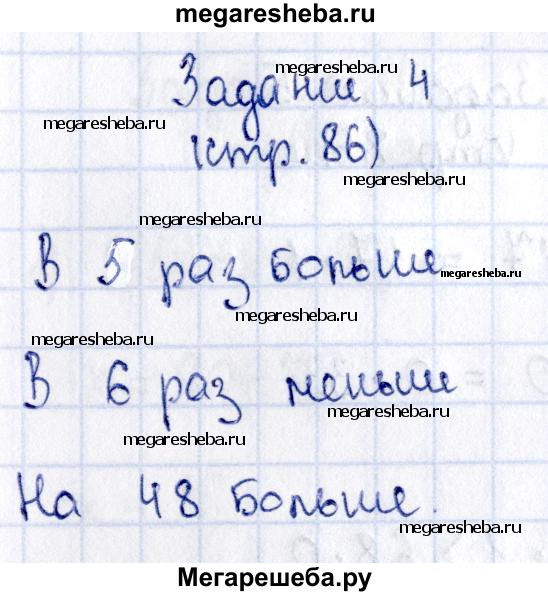 megaresheba.ru
Задание 4
megaresheba.ru
megaresheba.ru
(стр. 86)
megaresheba.ru
megaresheba.ru
В 5 раз больше
megaresheba.ru
megaresheba.ru
megaresheba.ru
В 6 раз меньше
megaresheba.ru
megaresheba.ru
На 48 больше.
megaresheba.ru
Мегарешеба.ру